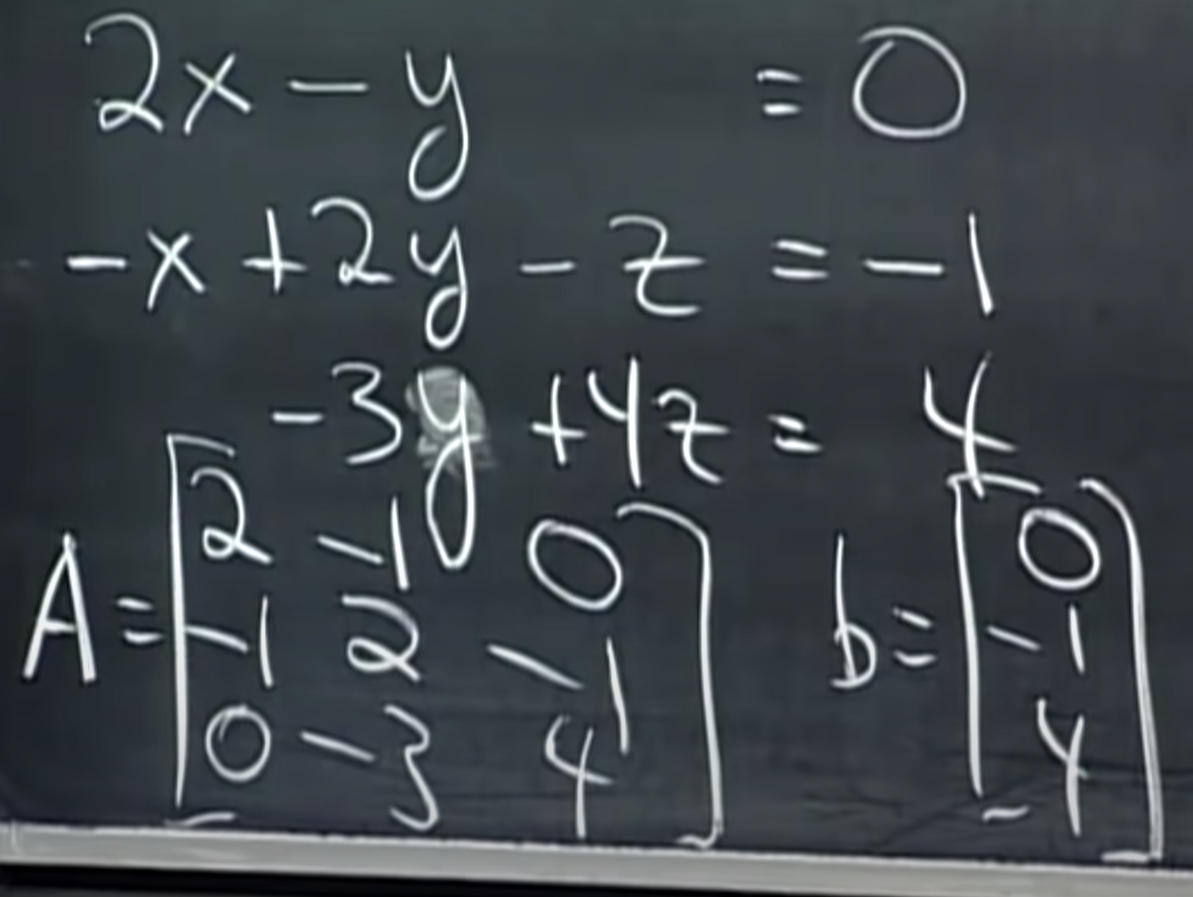 2x - y = 0
-x + 2y - z = -1
-3y + 4z = 4
A = [2 -1 0
-1 2 -1
0 -3 4]
b = [0
-1
4]